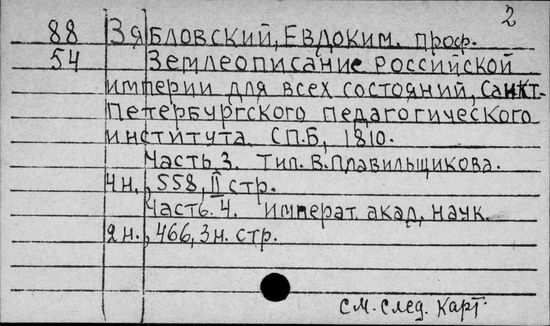 2
88 Зябловский, Евдоким. проф.
54 Землеописание российской
империи для всех состояний, Санкт-
Петербургского педагогического
института. СП.Б, 1810.
Часть 3. Тип. В. Плавильщикова.
4н., 558, II стр.
Часть. 4. императ. акад. наук.
2н., 466, 3н. стр.
см. след. карт.